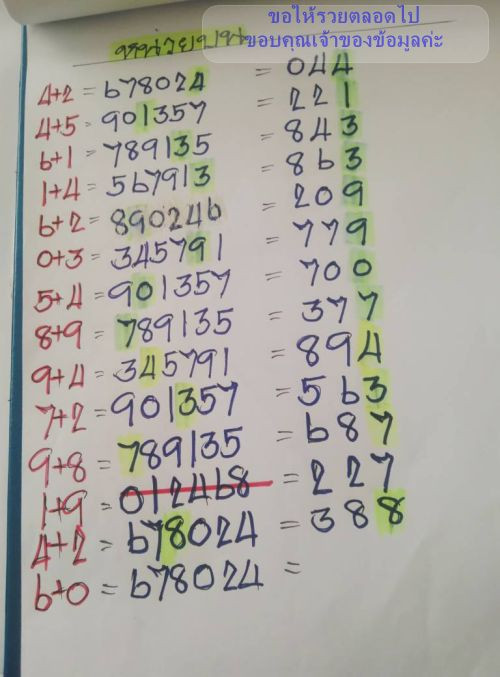 ขอให้รวยตลอดไป
ขอบคุณเจ้าของข้อมูลค่ะ
หน่วยบน
4+2 = 678024 = 044
4+5 = 901357 = 221
6+1 = 789135 = 843
1+4 = 567913 = 863
6+2 = 890246 = 209
0+3 = 345791 = 779
5+4 = 901357 = 700
8+9 = 789135 = 377
9+4 = 345791 = 894
7+2 = 901357 = 563
9+8 = 789135 = 687
1+9 = 012468 = 227
4+2 = 678024 = 388
6+0 = 678024 =